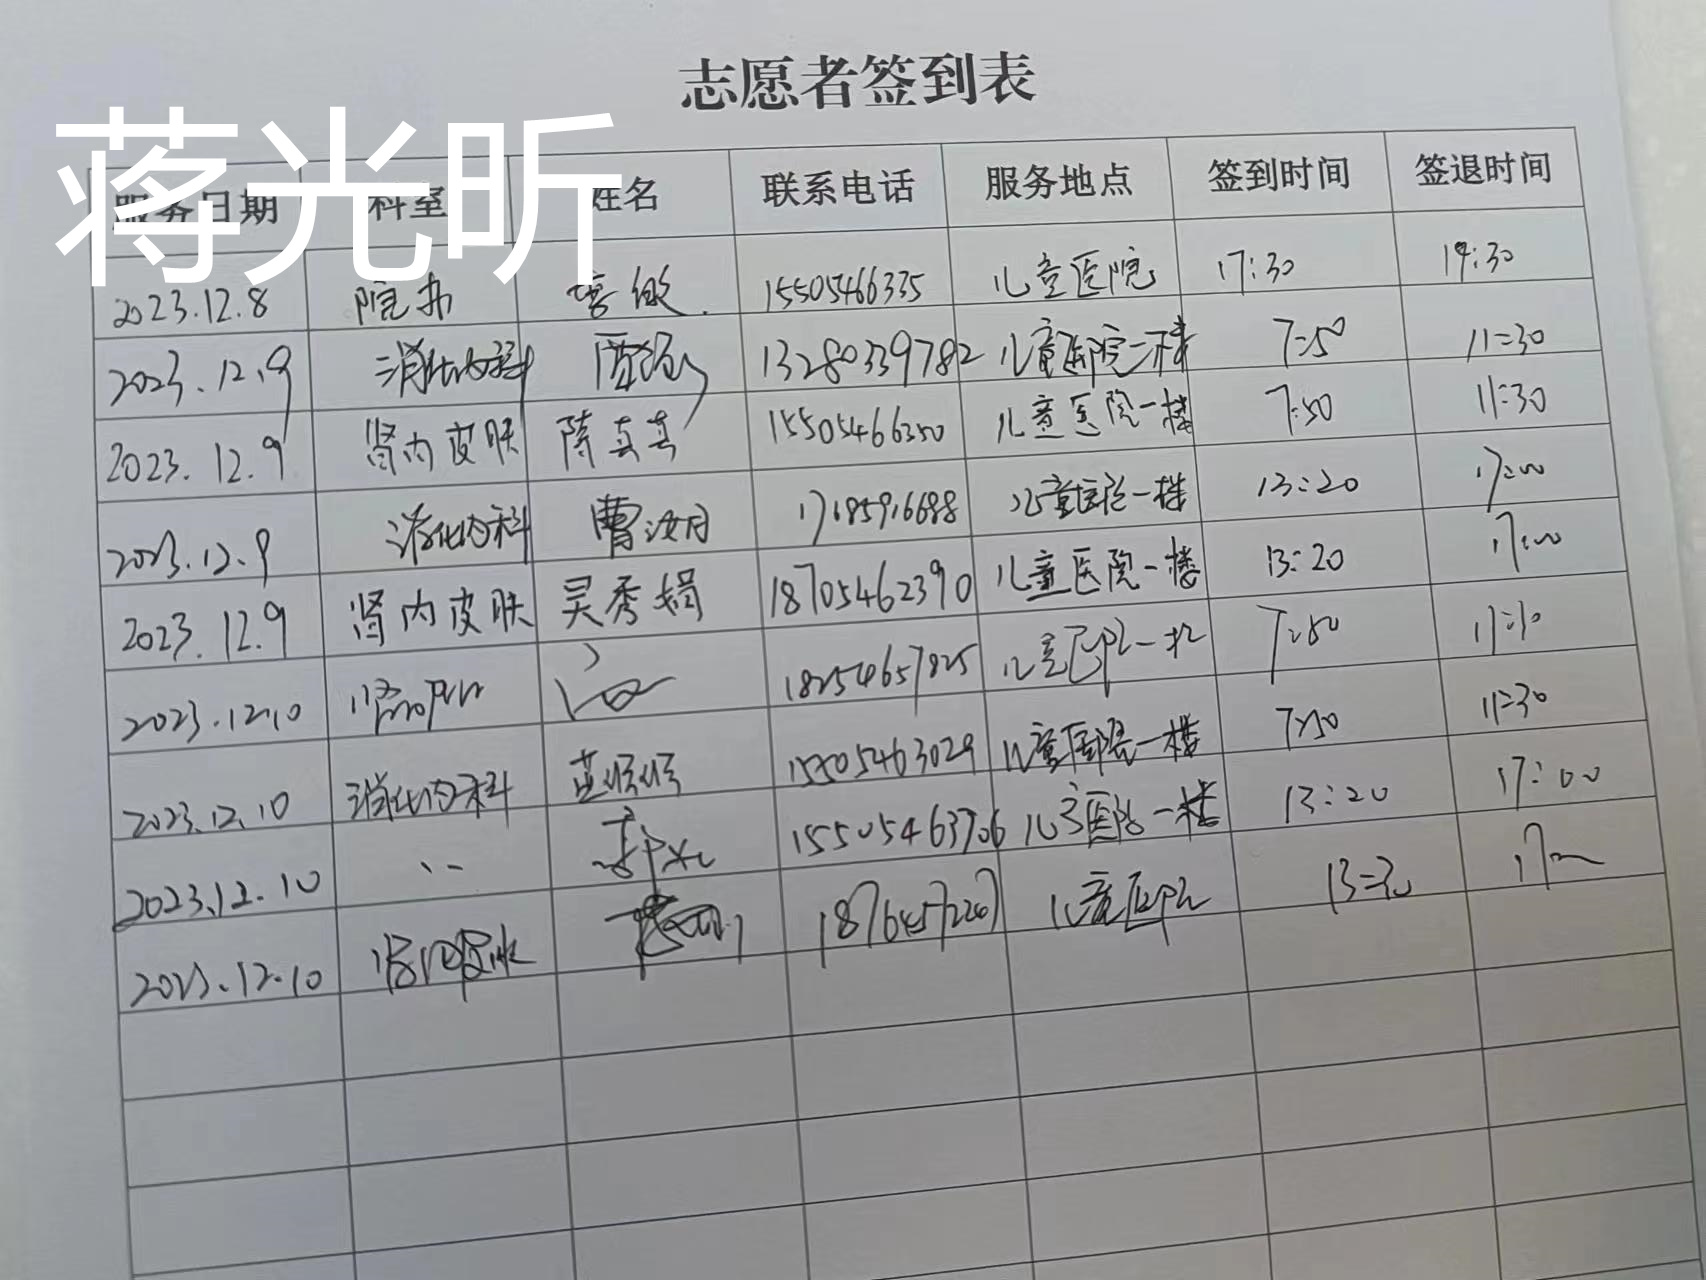 志愿者签到表
蒋光昕
服务日期 科室 姓名 联系电话 服务地点 签到时间 签退时间
2023.12.8 院办 15505466335 儿童医院 17:30 19:30
2023.12.9 消化内科 13280339782 儿童医院二楼 7:50 11:30
2023.12.9 肾内皮肤 15505466350 儿童医院一楼 7:50 11:30
2023.12.9 消化内科 17185916688 儿童医院一楼 13:20 17:00
2023.12.9 肾内皮肤 吴秀娟 18705462390 儿童医院一楼 13:20 17:00
2023.12.10 18254657825 儿童医院一楼 7:50
2023.12.10 消化内科 15505463029 儿童医院一楼 7:50 11:30
2023.12.10 15505463706 儿童医院一楼 13:20 17:00
2023.12.10 儿童医院 17:00